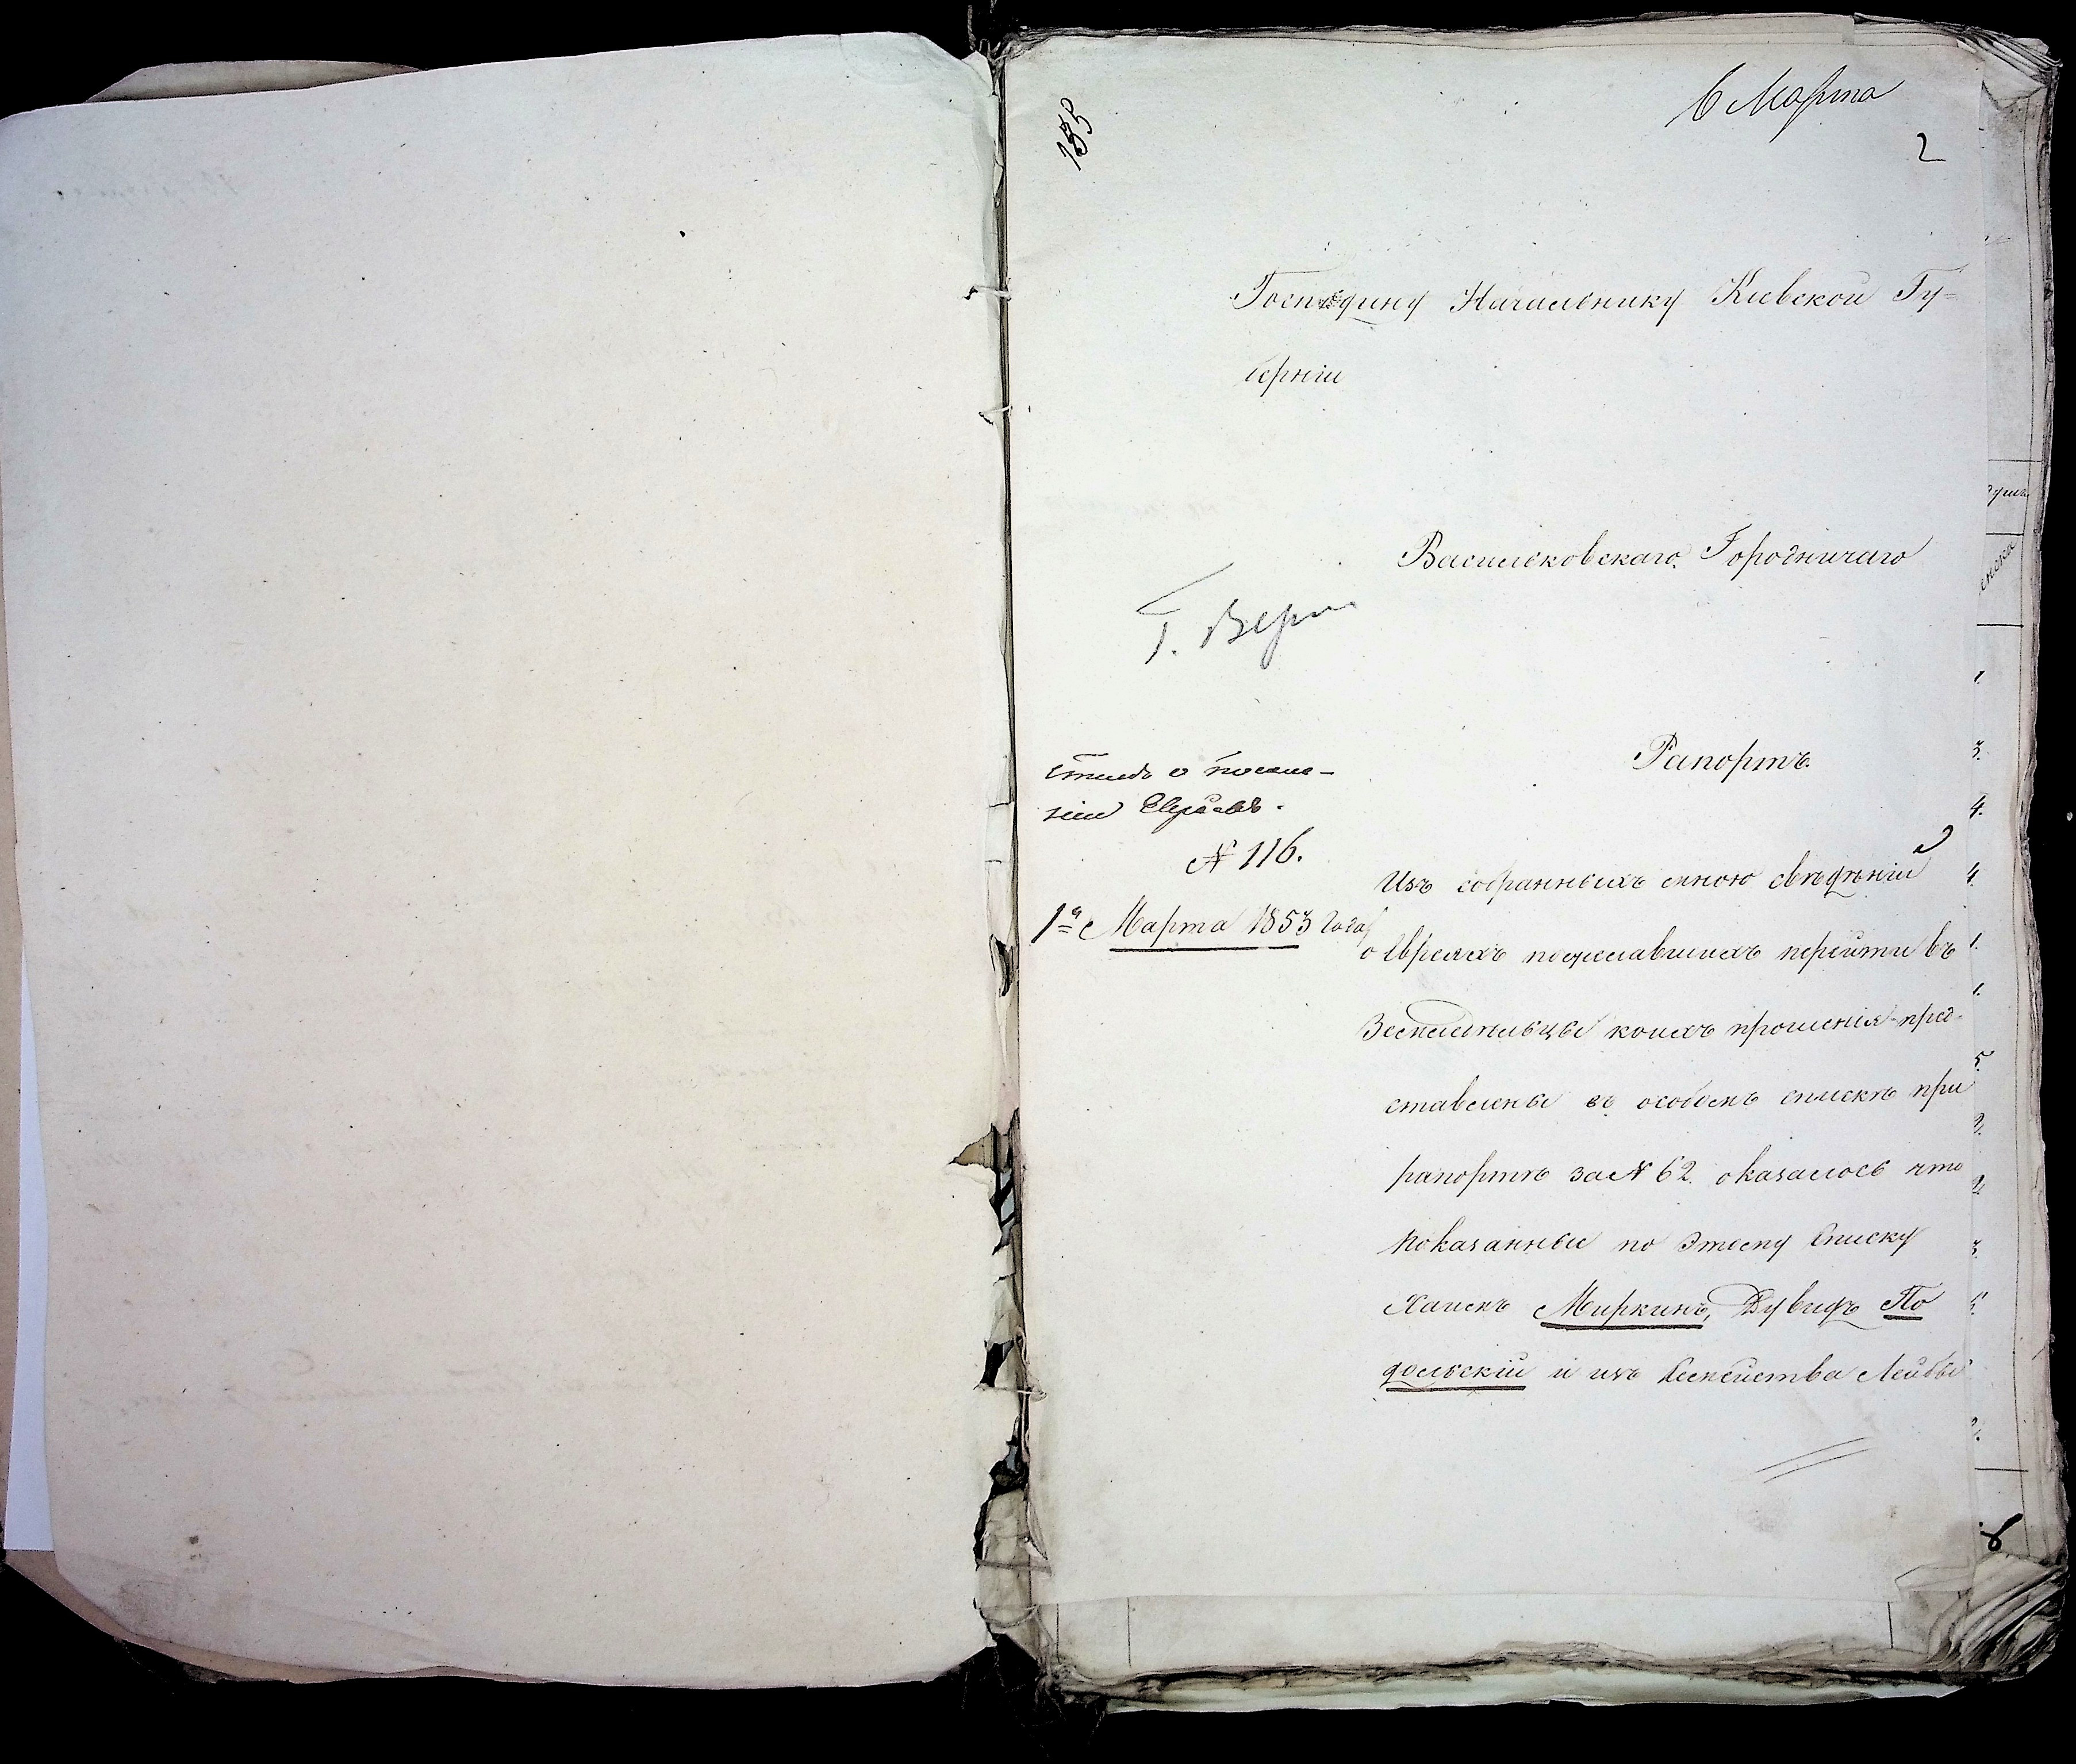 6 Марта
155
2
Господину Начальнику Кіевской Гу=
берніи
Васильковскаго Городничаго
Г. Верн
Рапортъ.
о поселе-
ніи Евреевъ.
№ 116.
1го Марта 1853 года
Изъ собранныхъ мною свѣдѣній
о Евреяхъ пожелавшихъ перейти въ
Земледѣльцы коихъ прошенія пред-
ставлены въ особомъ спискѣ при
рапортѣ за № 62. оказалось что
показанные по этому списку
Хаимъ Миркинъ, Дувидъ По
дольскій и изъ семейства Лейбы